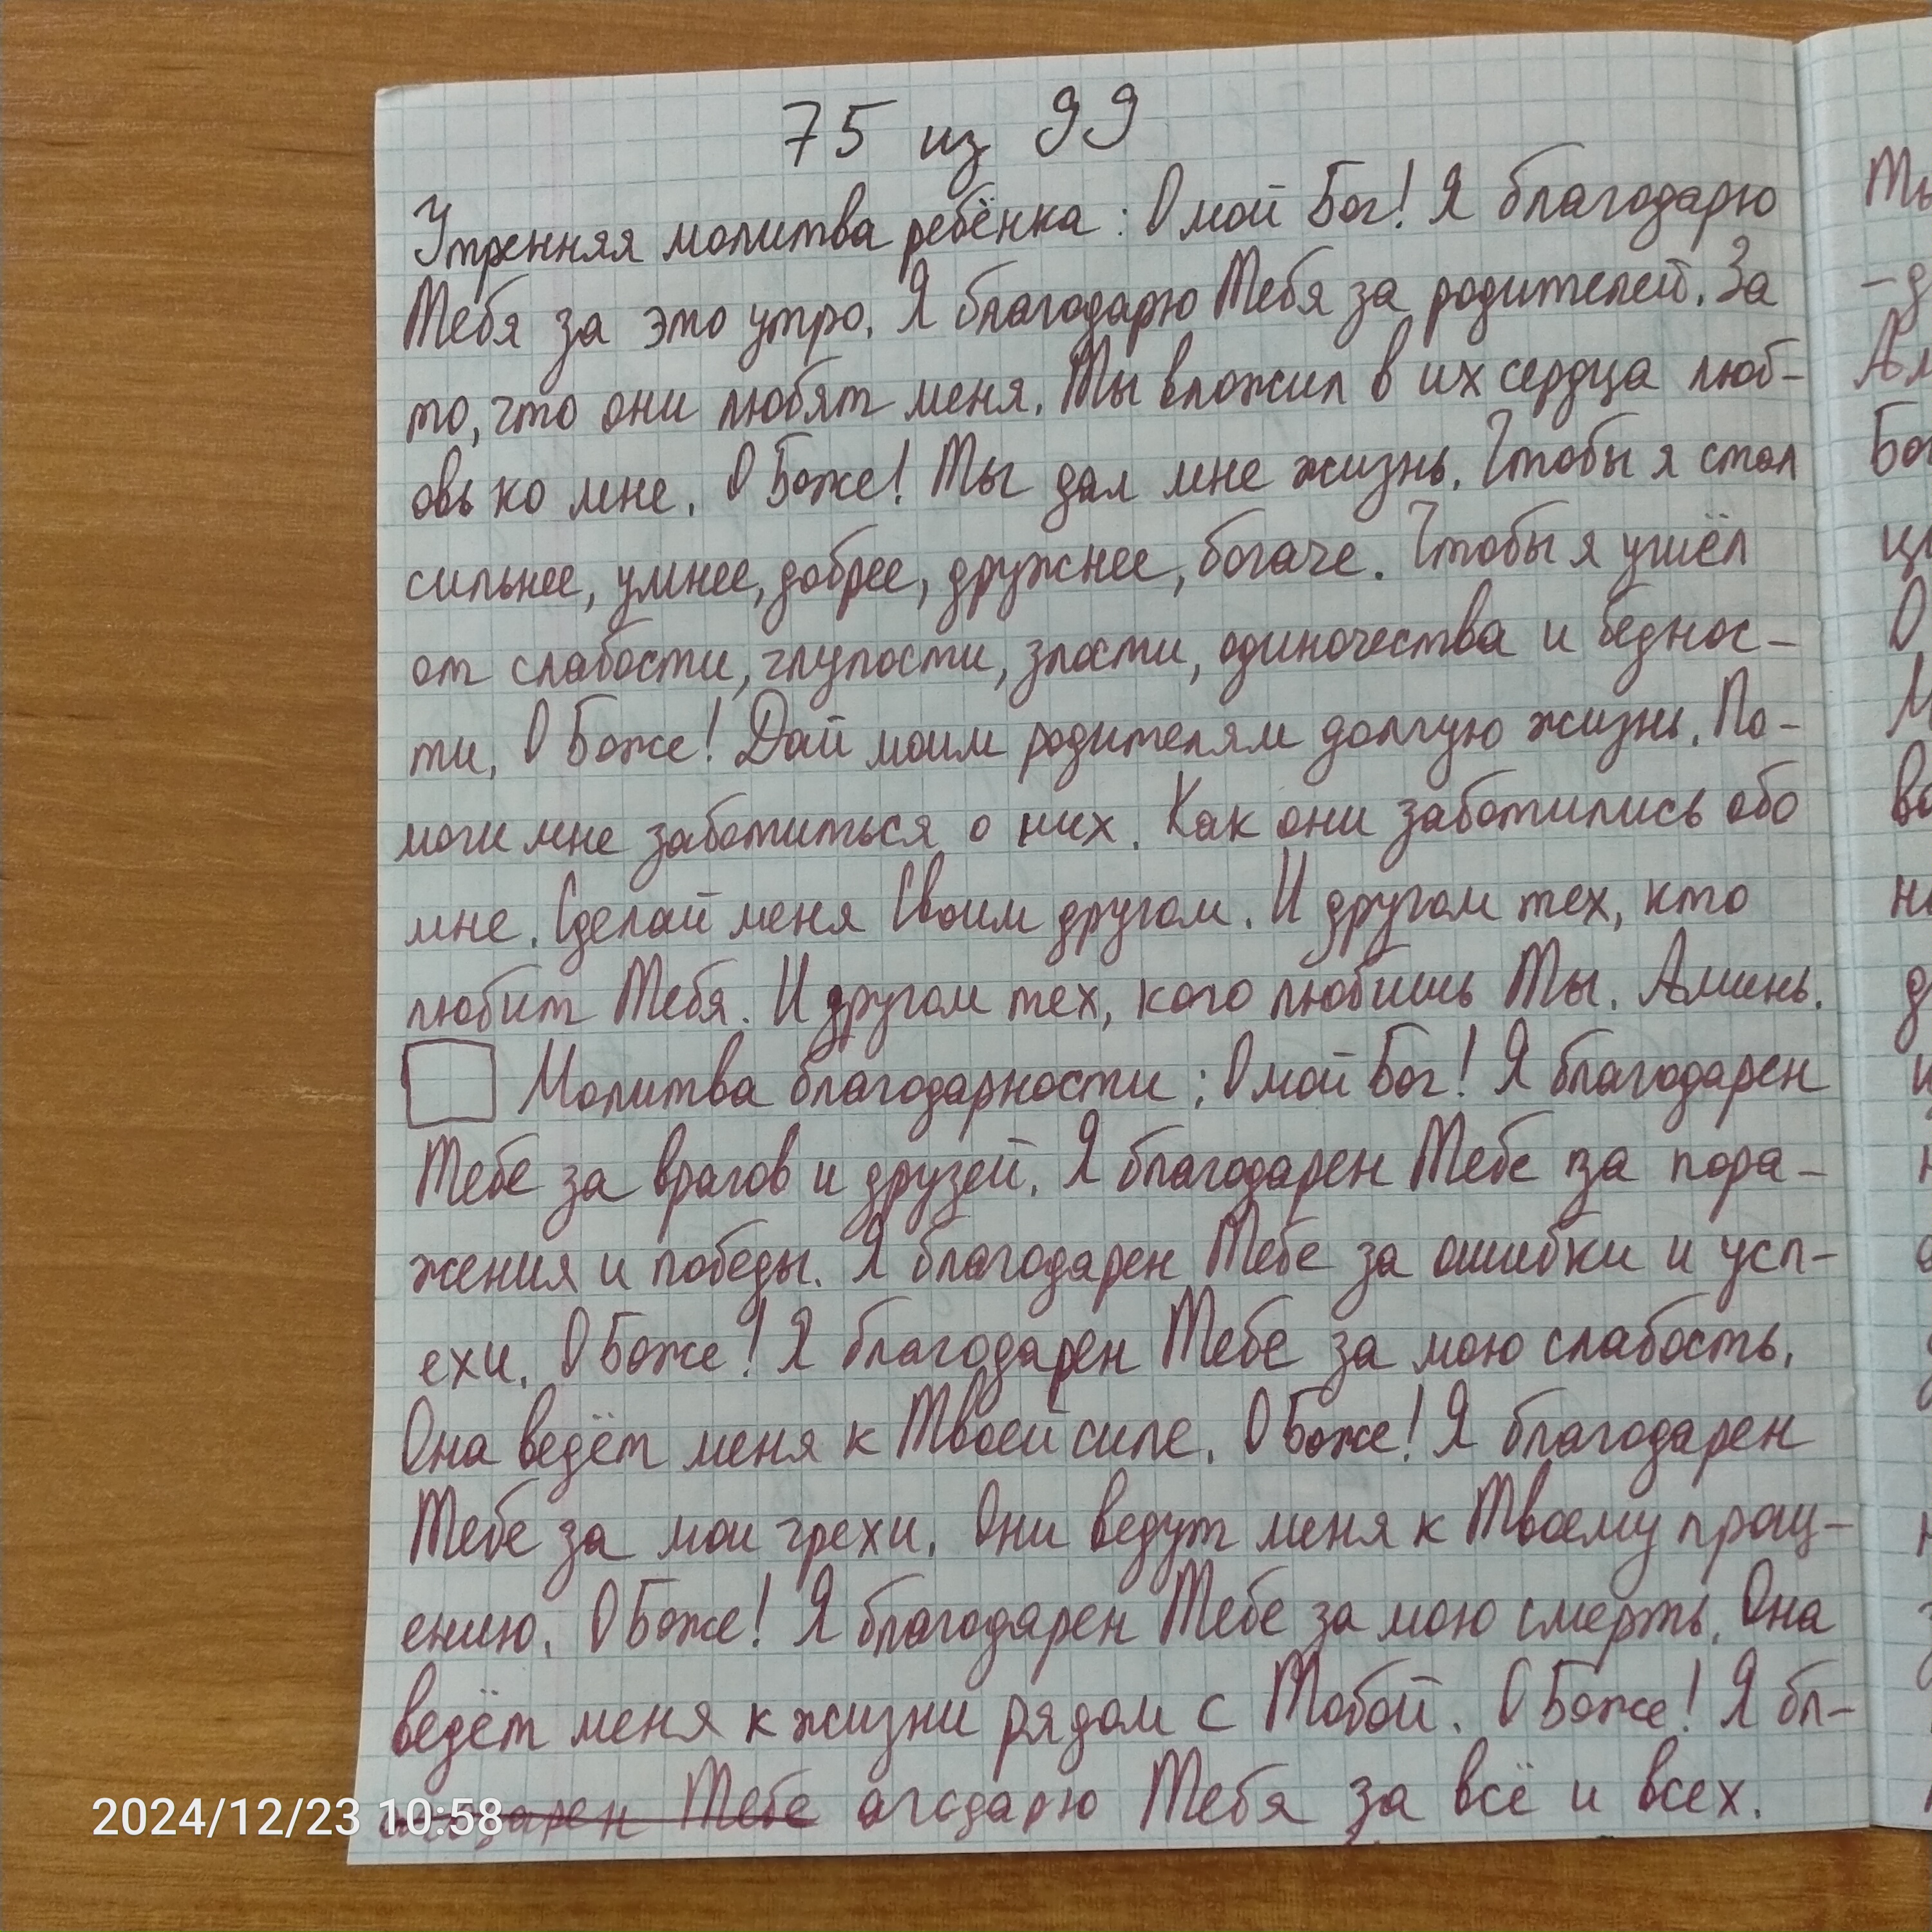 75 из 99
Утренняя молитва ребёнка: О мой Бог! Я благодарю
Тебя за это утро. Я благодарю Тебя за родителей. За
то, что они любят меня. Ты вложил в их сердца люб-
овь ко мне. О Боже! Ты дал мне жизнь. Чтобы я стал
сильнее, умнее, добрее, дружнее, богаче. Чтобы я ушёл
от слабости, глупости, злости, одиночества и беднос-
ти. О Боже! Дай моим родителям долгую жизнь. По-
моги мне заботиться о них. Как они заботились обо
мне. Сделай меня Своим другом. И другом тех, кто
любит Тебя. И другом тех, кого любишь Ты. Аминь.
Молитва благодарности: О мой Бог! Я благодарен
Тебе за врагов и друзей. Я благодарен Тебе за пора-
жения и победы. Я благодарен Тебе за ошибки и усп-
ехи. О Боже! Я благодарен Тебе за мою слабость.
Она ведёт меня к Твоей силе. О Боже! Я благодарен
Тебе за мои грехи. Они ведут меня к Твоему прощ-
ению. О Боже! Я благодарен Тебе за мою смерть. Она
ведёт меня к жизни рядом с Тобой. О Боже! Я бл-
Тебе агодарю Тебя за всё и всех.
2024/12/23 10:58